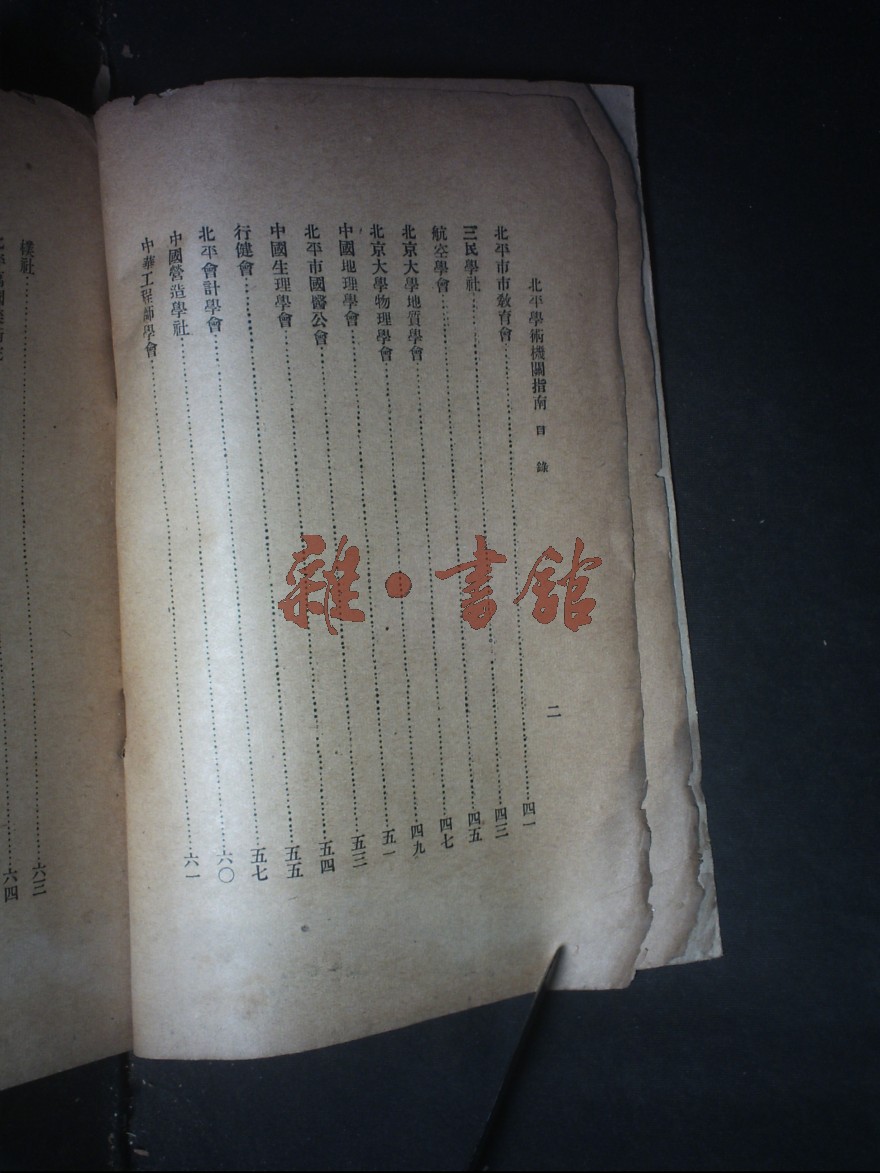 北平學術機關指南 目錄 二
北平市市教育會……四一
三民學社……四三
航空學會……四五
北京大學地質學會……四七
北京大學物理學會……四九
中國地理學會……五一
北平市國醫公會……五三
中國生理學會……五四
行健會……五五
北平會計學會……五七
中國營造學社……六〇
中華工程師學會……六一
樸社……六三
……六四
雜·書館